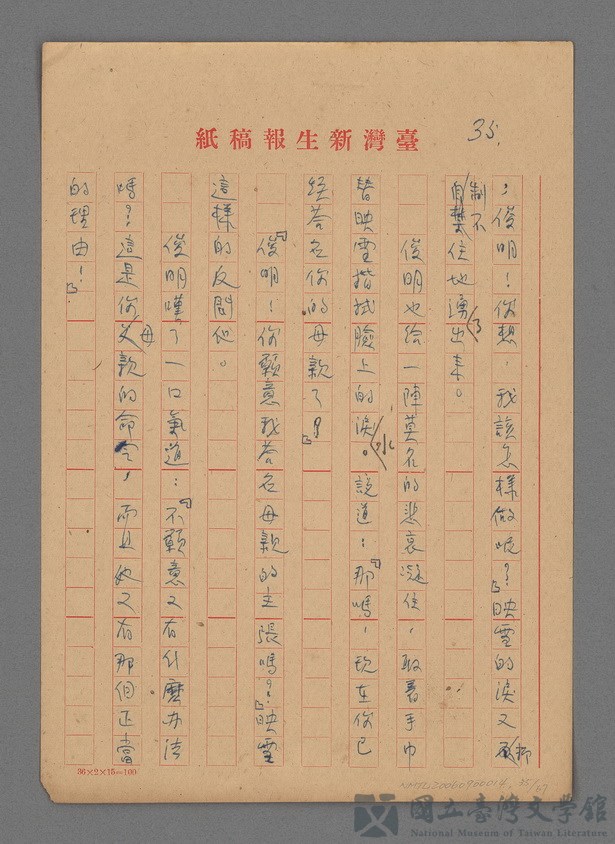 35.
臺灣新生報稿紙
,俊明!你想,我該怎樣做呢?」映雪的淚又抑
制不住地湧了出来。
俊明也给一陣莫名的悲哀凝住,取著手巾
替映雪揩拭臉上的淚水。說道:「那嗎,現在你已
经答应你的母親了?」
「俊明!你願意我答应母親的主張嗎?」映雪
這樣的反問他。
俊明嘆了一口氣道:「不願意又有什麼办法
嗎?這是你母親的命令,而且她又有那個正當
的理由!」
36×2×15=100
NMTL20060960014 35/37
國立臺灣文學館
National Museum of Taiwan Literature